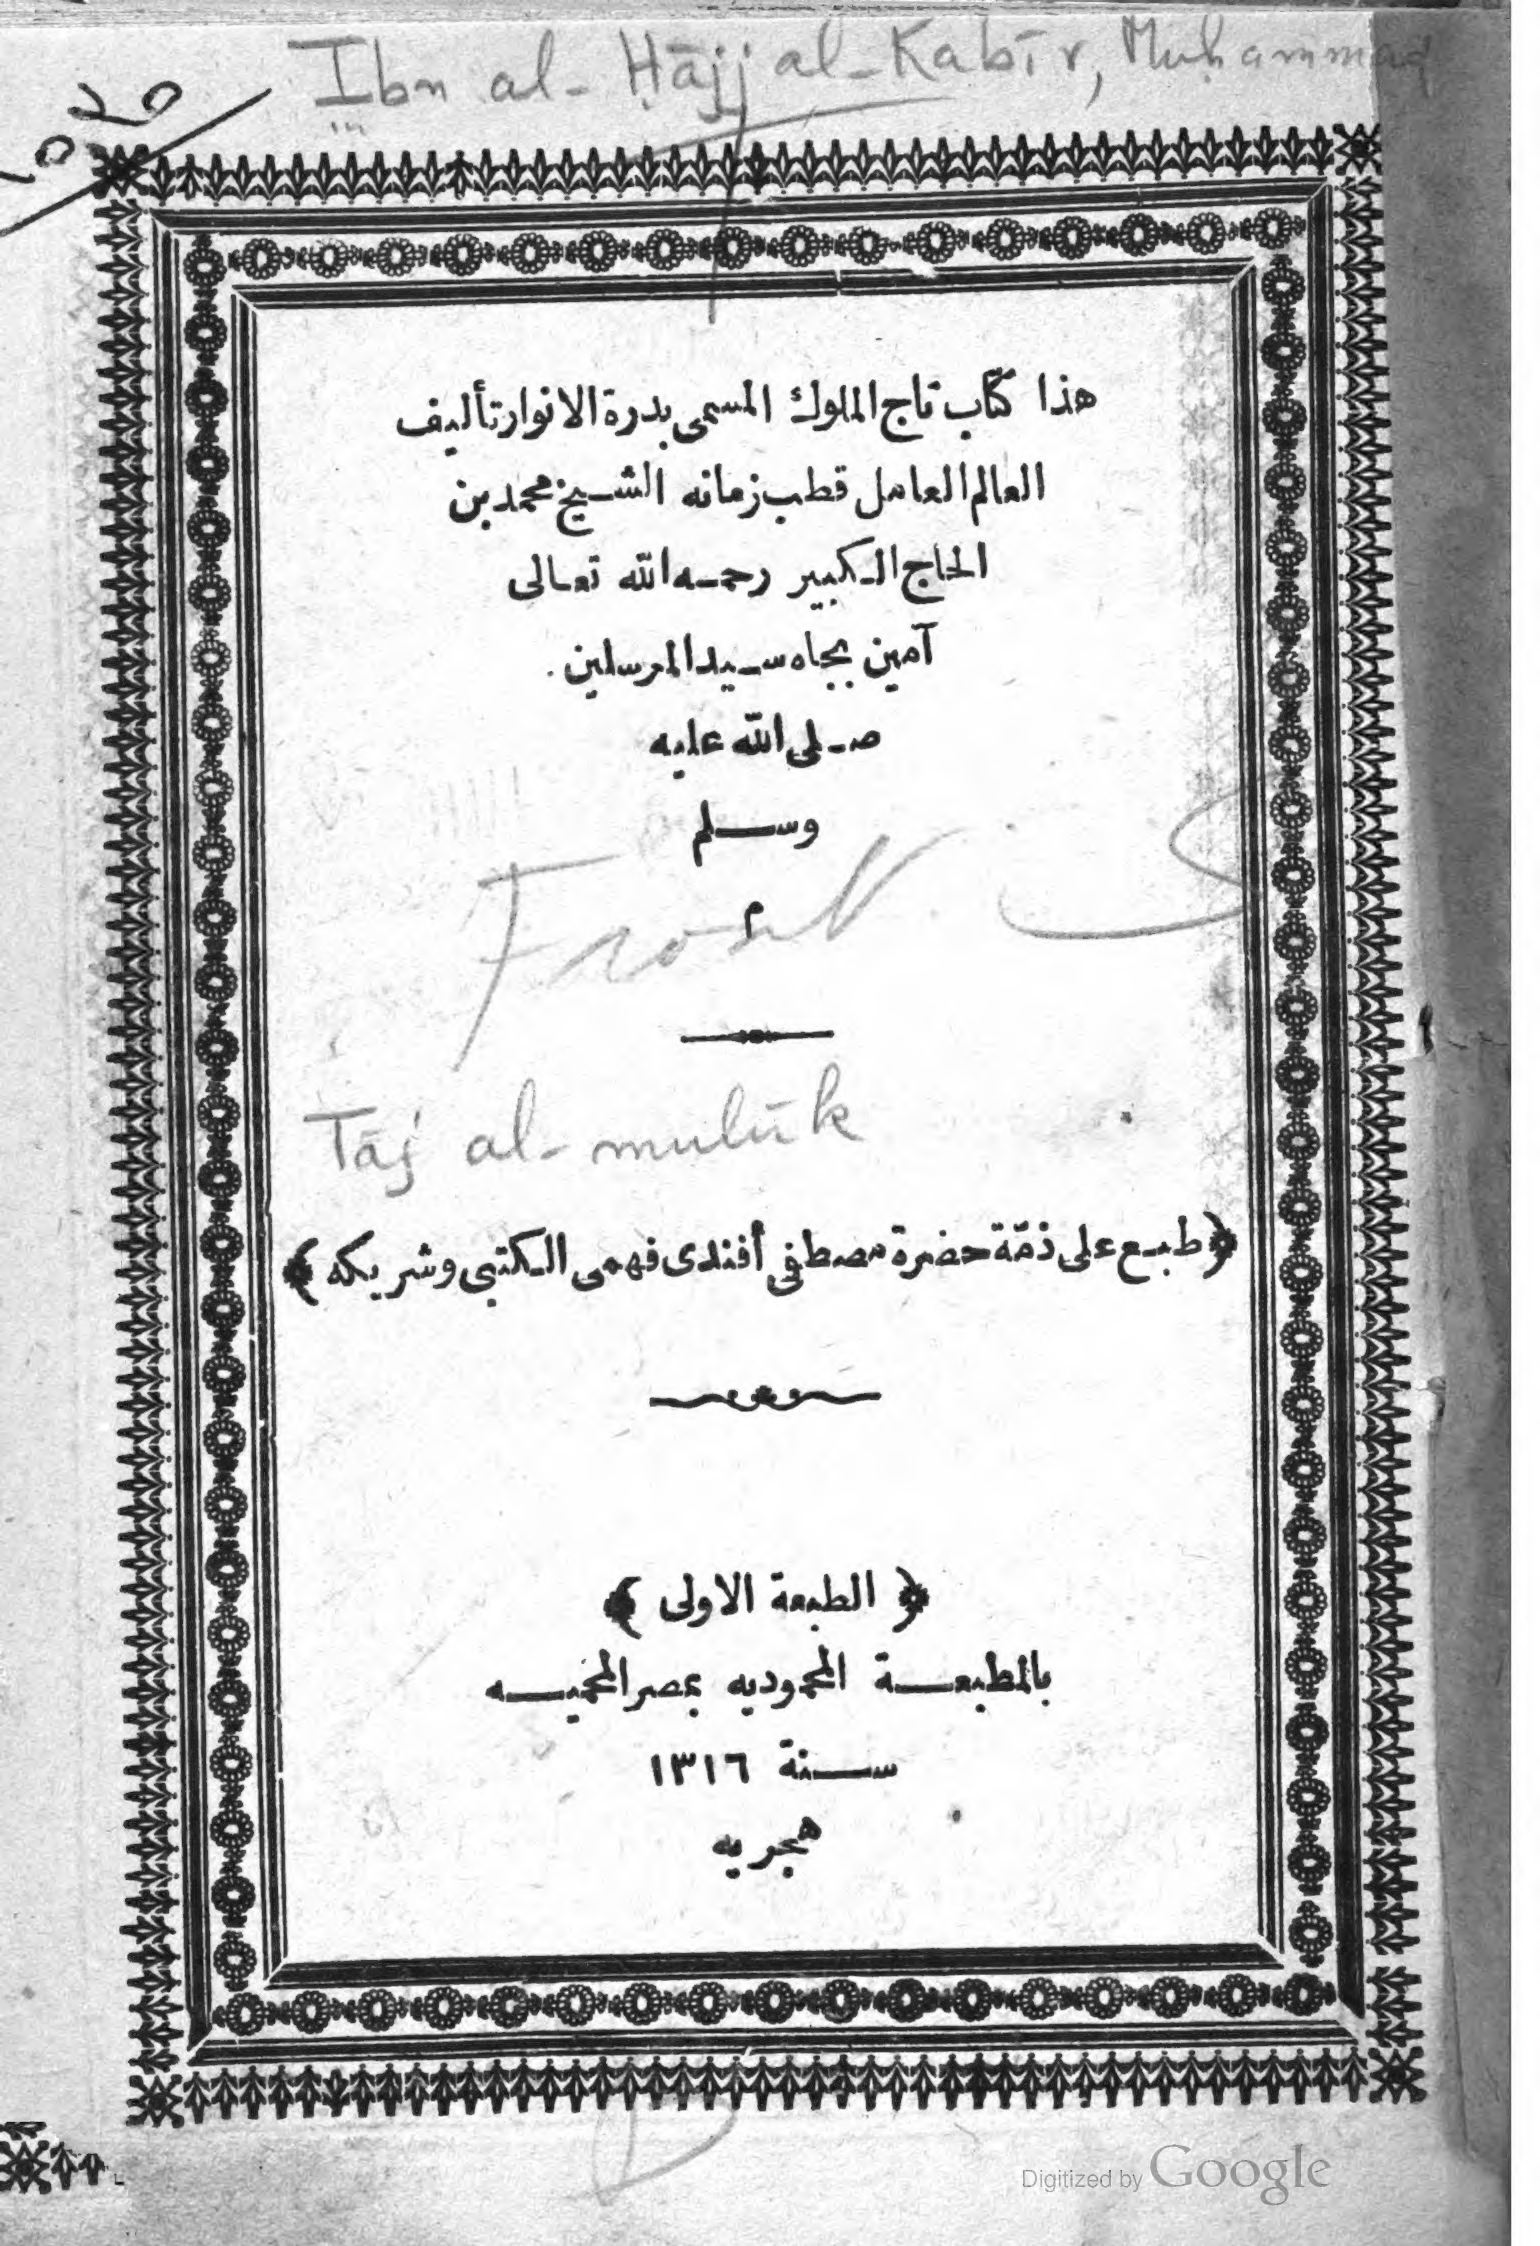 Ibn al-Ḥājj al-Kabīr, Muḥammad
هذا كتاب تاج الملوك المسمى بدرة الانوار تأليف
العالم العامل قطب زمانه الشيخ محمد بن
الحاج الكبير رحمه الله تعالى
آمين بجاه سيد المرسلين
صلى الله عليه
وسلم
م
Tāj al-mulūk
﴿طبع على ذمّة حضرة مصطفى أفندى فهمى الكتبى وشريكه﴾
﴿الطبعة الاولى﴾
بالمطبعة المحموديه بمصر المحميه
سنة ١٣١٦
هجريه
Digitized by Google